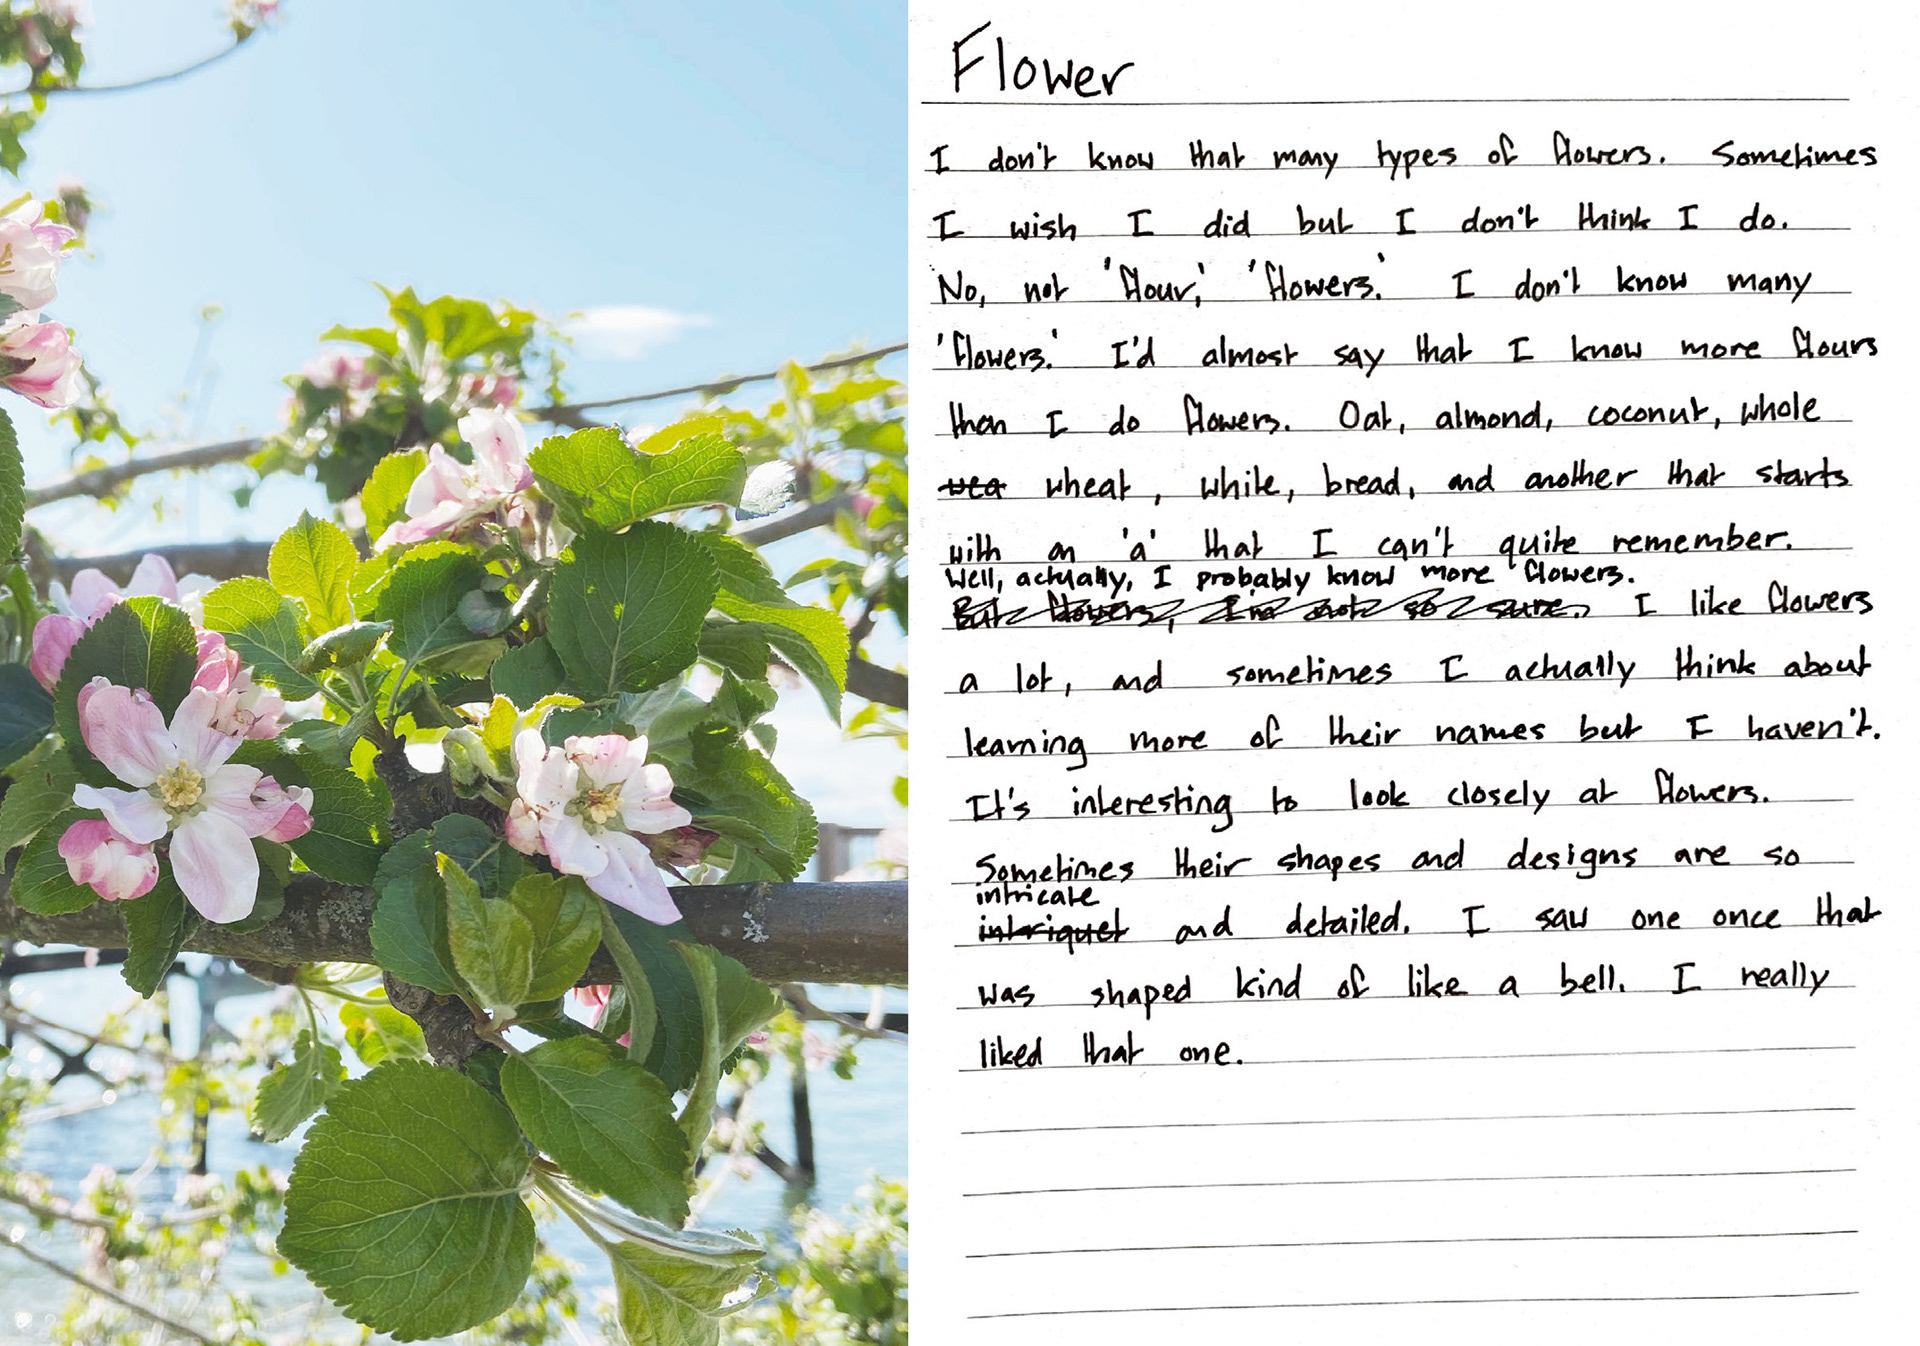 Flower
I don't know that many types of flowers. Sometimes
I wish I did but I don't think I do.
No, not 'flour,' 'flowers.' I don't know many
'flowers.' I'd almost say that I know more flours
than I do flowers. Oat, almond, coconut, whole
wea wheat, white, bread, and another that starts
with an 'a' that I can't quite remember.
Well, actually, I probably know more flowers.
But flowers, I'm not so sure. I like flowers
a lot, and sometimes I actually think about
learning more of their names but I haven't.
It's interesting to look closely at flowers.
Sometimes their shapes and designs are so
intricate
intriquet and detailed. I saw one once that
was shaped kind of like a bell. I really
liked that one.